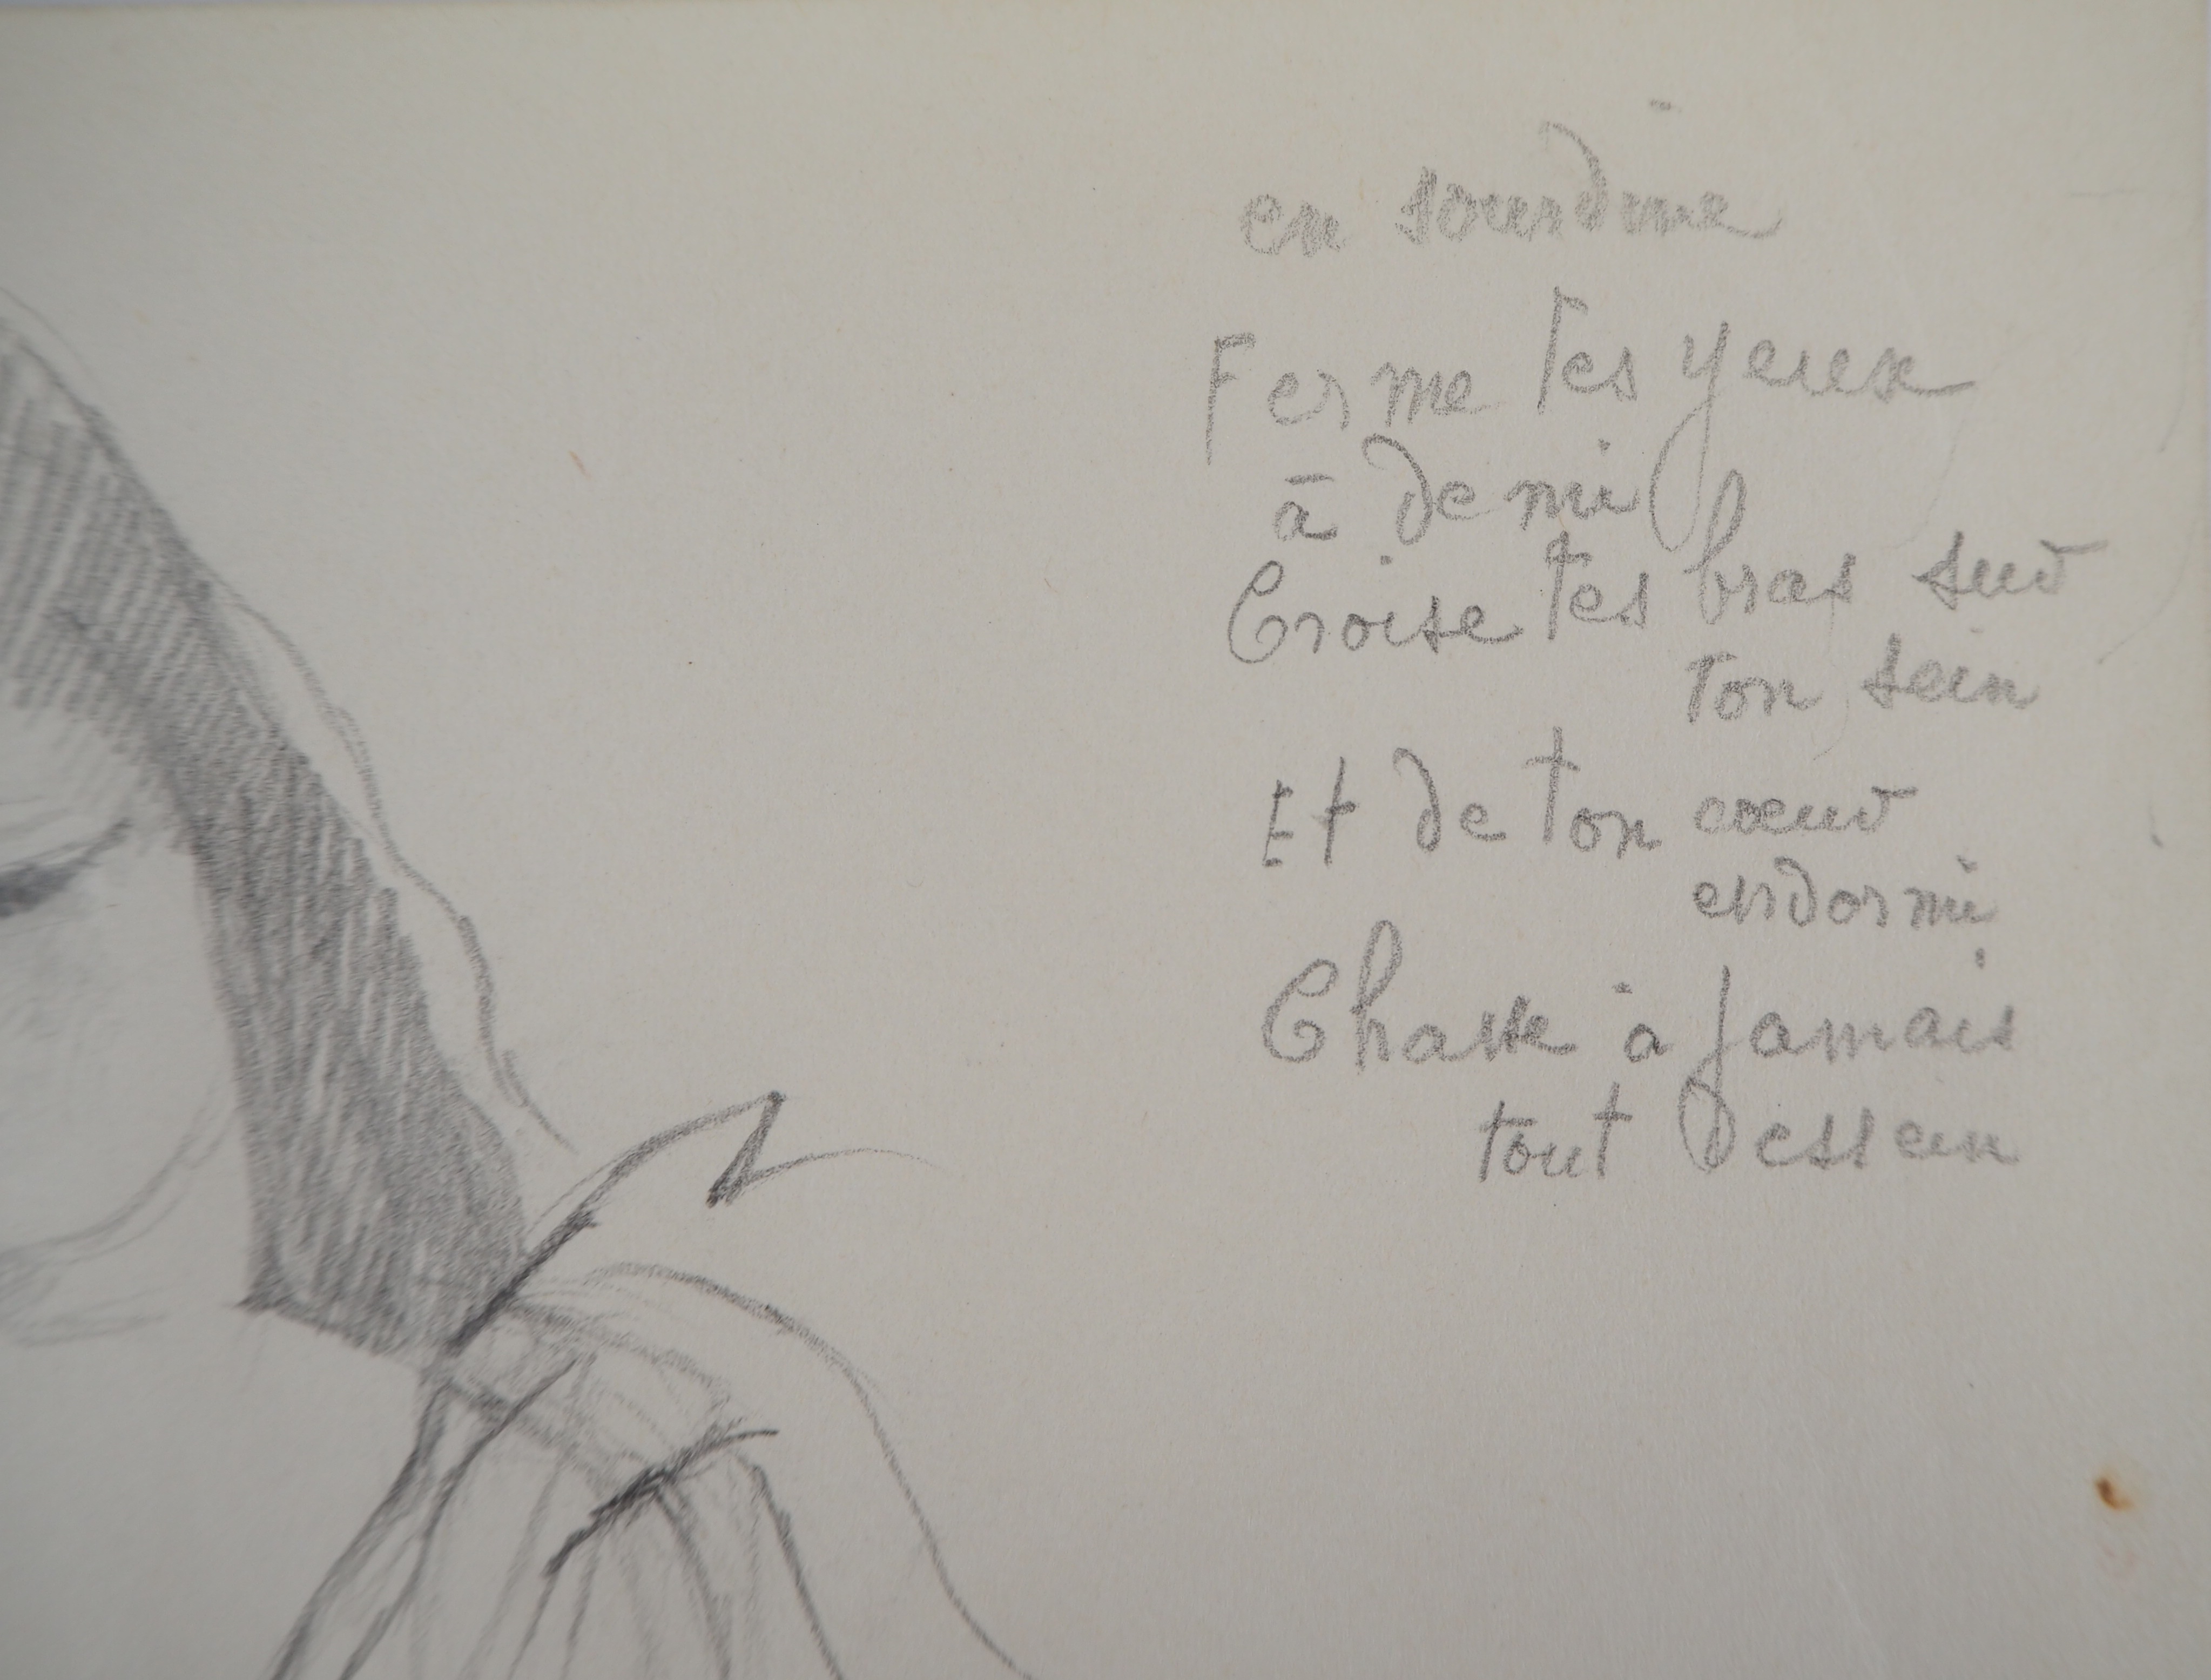 en sourdine
Ferme tes yeux
à demi
Croise tes bras sur
ton sein
Et de ton cœur
endormi
Chasse à jamais
tout dessein